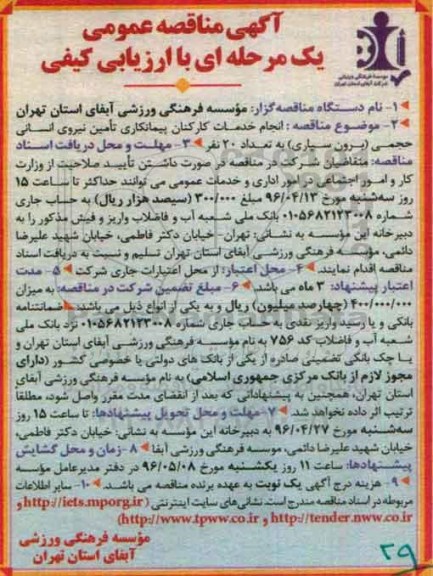 آگهی مناقصه عمومی
یک مرحله ای با ارزیابی کیفی
مؤسسه فرهنگی ورزشی
آبفای استان تهران
۱- نام دستگاه مناقصه‌گزار: مؤسسه فرهنگی ورزشی آبفای استان تهران
۲- موضوع مناقصه : انجام خدمات کارکنان پیمانکاری تأمین نیروی انسانی
حجمی (برون سپاری) به تعداد ۲۰ نفر ۳- مهلت و محل دریافت اسناد
مناقصه: متقاضیان شرکت در مناقصه در صورت داشتن تأیید صلاحیت از وزارت
کار و امور اجتماعی در امور اداری و خدمات عمومی می توانند حداکثر تا ساعت ۱۵
روز سه‌شنبه مورخ ۹۶/۰۴/۱۳ مبلغ ۳۰۰/۰۰۰ (سیصد هزار ریال) به حساب جاری
شماره ۰۱۰۵۶۸۲۱۲۳۰۰۸ بانک ملی شعبه آب و فاضلاب واریز و فیش مذکور را به
دبیرخانه این مؤسسه به نشانی: تهران - خیابان دکتر فاطمی، خیابان شهید علیرضا
دائمی، مؤسسه فرهنگی ورزشی آبفای استان تهران تسلیم و نسبت به دریافت اسناد
مناقصه اقدام نمایند. ۴- محل اعتبار: از محل اعتبارات جاری شرکت ۵- مدت
اعتبار پیشنهاد: ۳ ماه می باشد. ۶- مبلغ تضمین شرکت در مناقصه: به میزان
۴۰۰/۰۰۰/۰۰۰ (چهارصد میلیون) ریال و به یکی از انواع ذیل می باشد: ضمانتنامه
بانکی و یا رسید واریز نقدی به حساب جاری شماره ۰۱۰۵۶۸۲۱۲۳۰۰۸ نزد بانک ملی
شعبه آب و فاضلاب کد ۷۵۶ به نام مؤسسه فرهنگی ورزشی آبفای استان تهران و
یا چک بانکی تضمینی صادره از یکی از بانک های دولتی یا خصوصی کشور (دارای
مجوز لازم از بانک مرکزی جمهوری اسلامی) به نام مؤسسه فرهنگی ورزشی آبفای
استان تهران، همچنین به پیشنهاداتی که بعد از انقضای مدت مقرر واصل شود، مطلقا
ترتیب اثر داده نخواهد شد. ۷- مهلت و محل تحویل پیشنهادها: تا ساعت ۱۵ روز
سه‌شنبه مورخ ۹۶/۰۴/۲۷ به دبیرخانه این مؤسسه به نشانی: خیابان دکتر فاطمی،
خیابان شهید علیرضا دائمی، موسسه فرهنگی ورزشی آبفا ۸- زمان و محل گشایش
پیشنهادها: ساعت ۱۱ روز یکشنبه مورخ ۹۶/۰۵/۰۸ در دفتر مدیرعامل مؤسسه
۹- هزینه درج آگهی یک نوبت به عهده برنده مناقصه می باشد. ۱۰- سایر اطلاعات
مربوطه در اسناد مناقصه مندرج است. نشانی‌های سایت اینترنتی (http://iets.mporg.ir و
http://tender.nww.co.ir و http://www.tpww.co.ir)
مؤسسه فرهنگی ورزشی
آبفای استان تهران
۲۹